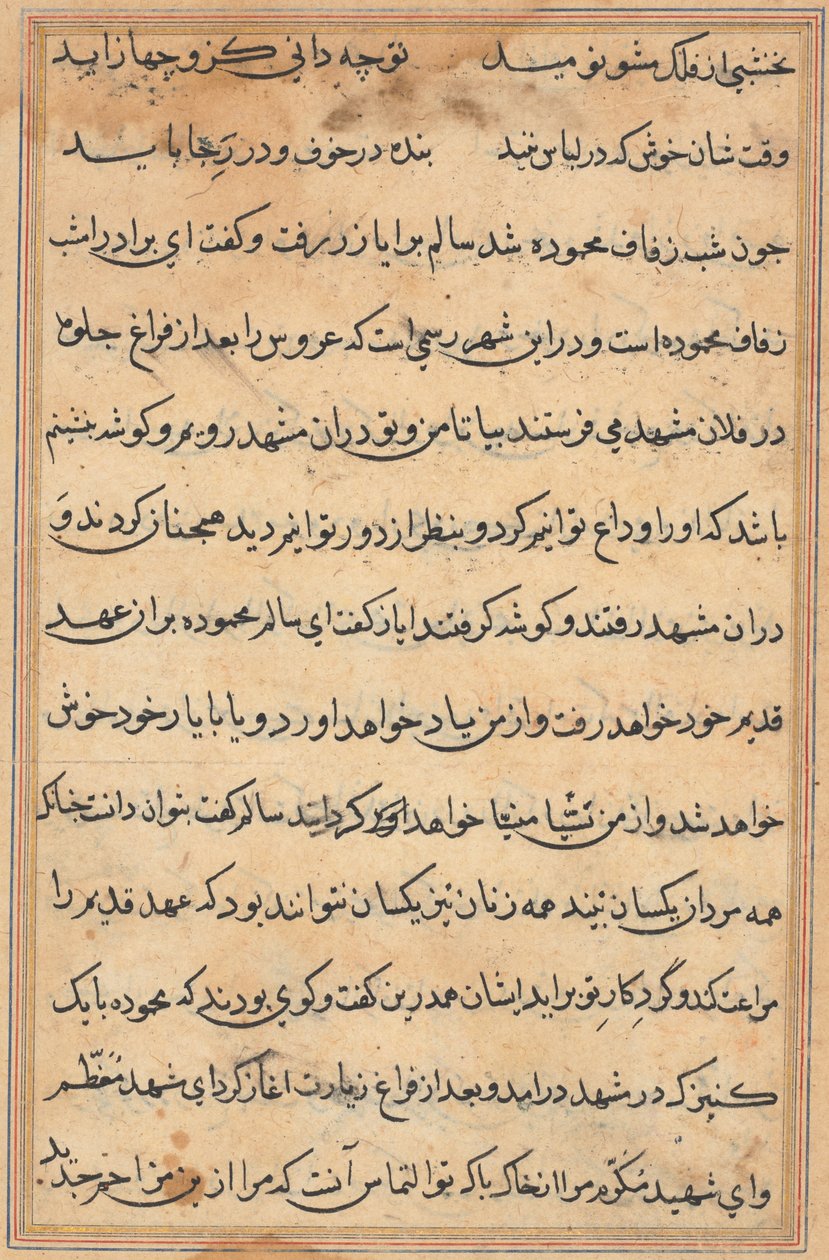 نخشبی از فلک مشو نومید تو چه دانی کزو چها زاید
وقت شان خوش که در لباس نیند بنده در خوف و در رَجا باید
جون شب زفاف محموده شد سالم برایاز رفت و کفت ای برادر امشب
زفاف محموده است و در این شهر رسمی است که عروس را بعد از فراغ جلوه
در فلان مشهد می فرستند بیا تا من و تو دران مشهد رویم و کوشه بنشینم
باشد که او را وداع توانیم کرد و بنظر از دور توانیم دید همجنان کردند وَ
دران مشهد رفتند و کوشه کرفتند ایاز کفت ای سالم محموده بران عهد
قدیم خود خواهد رفت و از من یاد خواهد اورد و یا با یار خود خوش
خواهد شد و از من نسّیا منیّا خواهد کردانید سالم کفت بتوان دانت جنانک
همه مردان یکسان نیند همه زنان نیز یکسان نتوانند بود که عهد قدیم را
مراعت کند و گردِ کارِ تو براید ایشان همدرین کفت و کوی بودند که محموده با یک
کنیزک در مشهد درامد و بعد از فراغ زیارت اغاز کرد ای شهد مُعَظّم
و ای شهید مُکَرّم مرا از خاک باک تو التماس آنت که مرا ازین مزاحم جدید